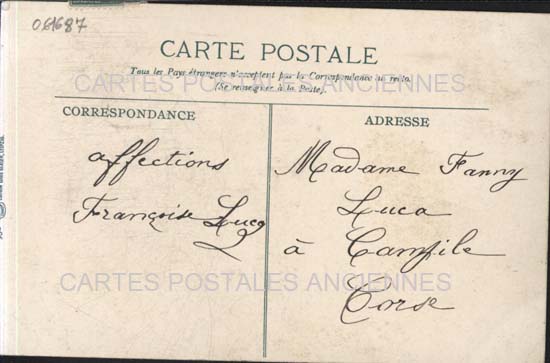 061687
CARTE POSTALE
Tous les Pays étrangers n'acceptent pas la Correspondance au recto.
(Se renseigner à la Poste).
CARTES POSTALES ANCIENNES
CORRESPONDANCE
affections
Françoise Luca
ADRESSE
Madame Fanny
Luca
à Campile
Corse
CARTES POSTALES ANCIENNES